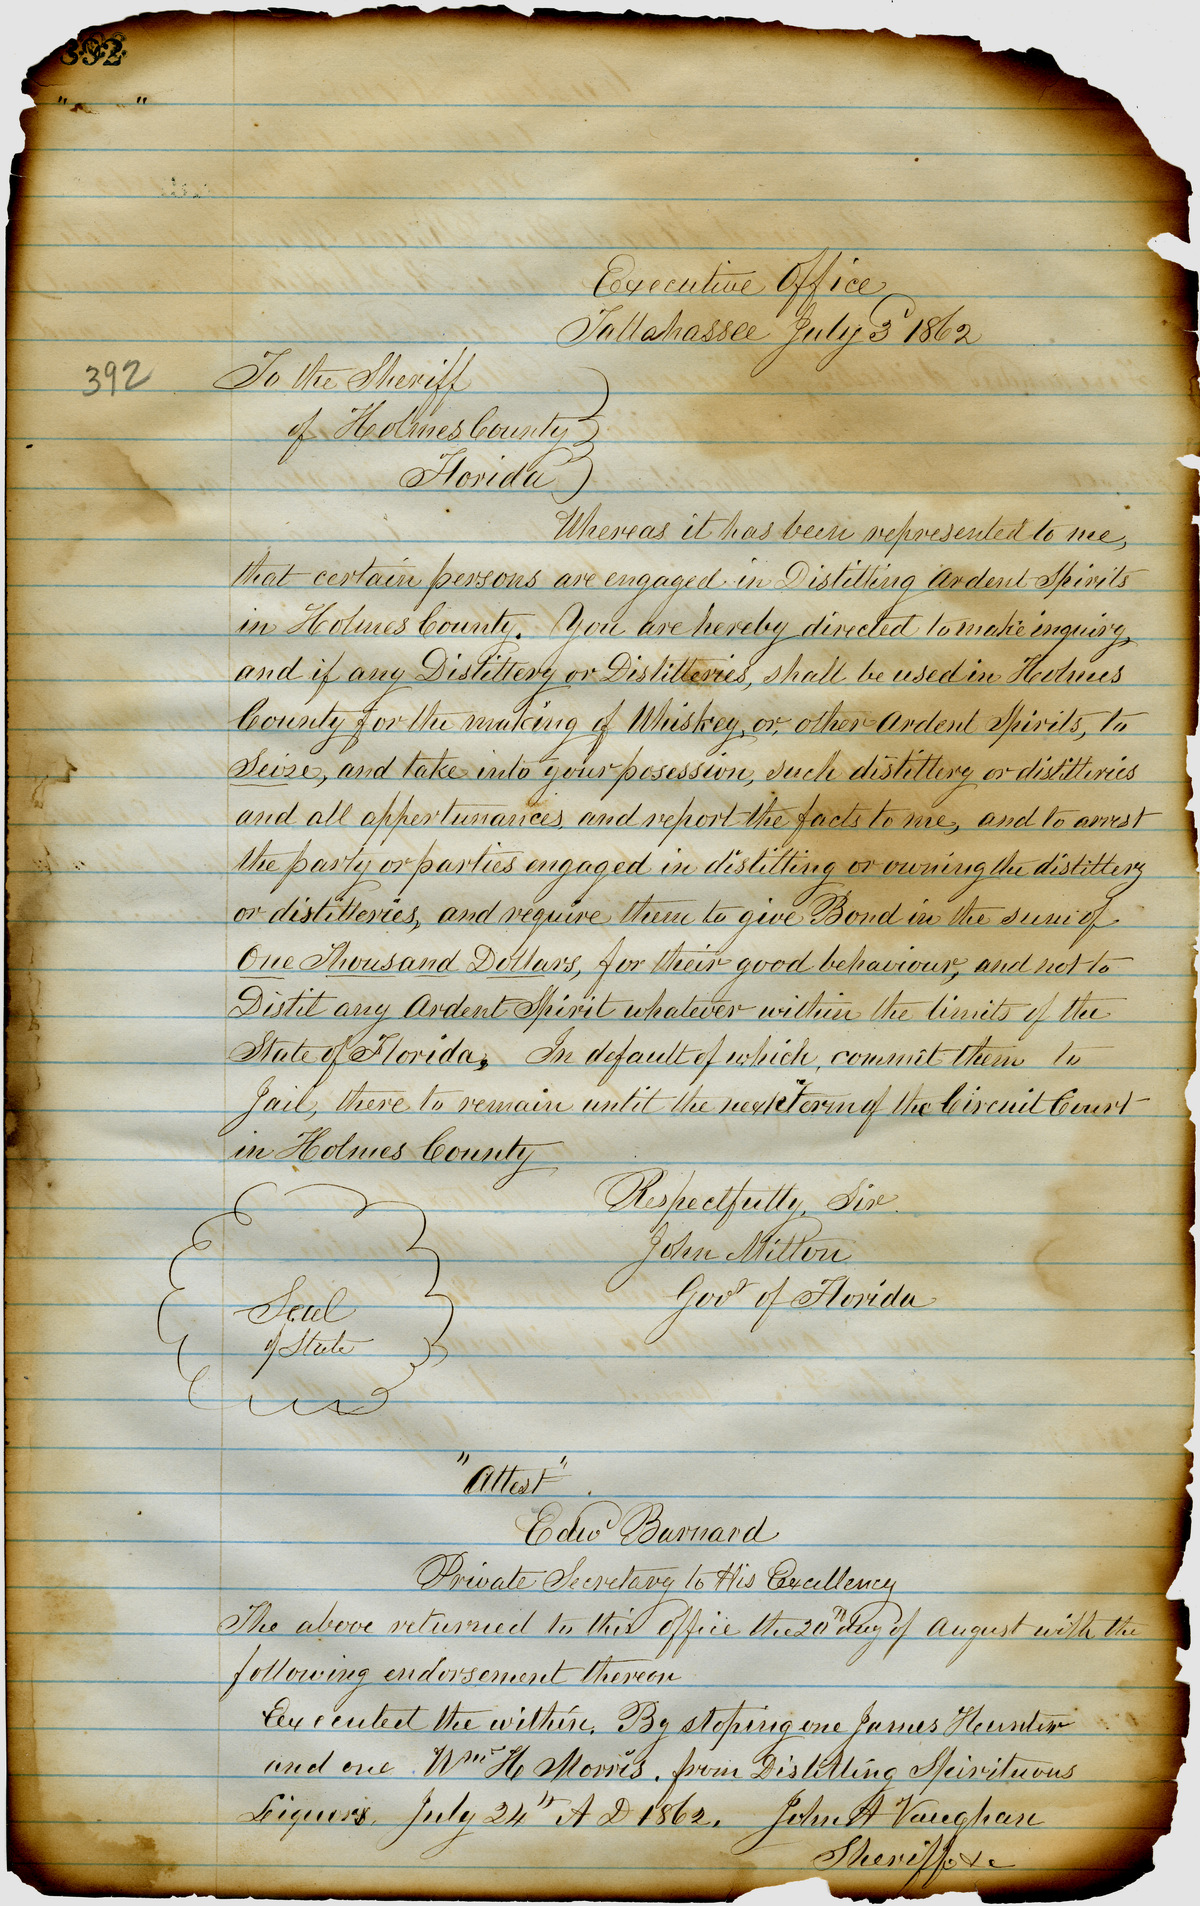 392
" "
Executive Office
Tallahassee July 3d 1862
392
To the Sheriff
of Holmes County
Florida
Whereas it has been represented to me,
that certain persons are engaged in Distilling Ardent Spirits
in Holmes County. You are hereby directed to make inquiry,
and if any Distillery or Distilleries, shall be used in Holmes
County for the making of Whiskey, or, other Ardent Spirits, to
Seize, and take into your posession, such distillery or distilleries
and all appertunances, and report the facts to me, and to arrest
the party or parties engaged in distilling or owning the distillery
or distilleries, and require them to give Bond in the sum of
One Thousand Dollars, for their good behaviour, and not to
Distil any Ardent Spirit whatever within the limits of the
State of Florida, In default of which, commit them to
Jail, there to remain until the next Term of the Circuit Court
in Holmes County
Respectfully, Sir.
John Milton
Govr of Florida
Seal
of State
"Attest".
Edwd Barnard
Private Secretary to His Excellency
The above returned to this office the 20th day of August with the
following endorsement thereon
Executed the within. By stoping one James Hunter
and one Wm H Morris. from Distilling Spirituous
Liquors. July 24th A D 1862. John A Vaughan
Sheriff &c